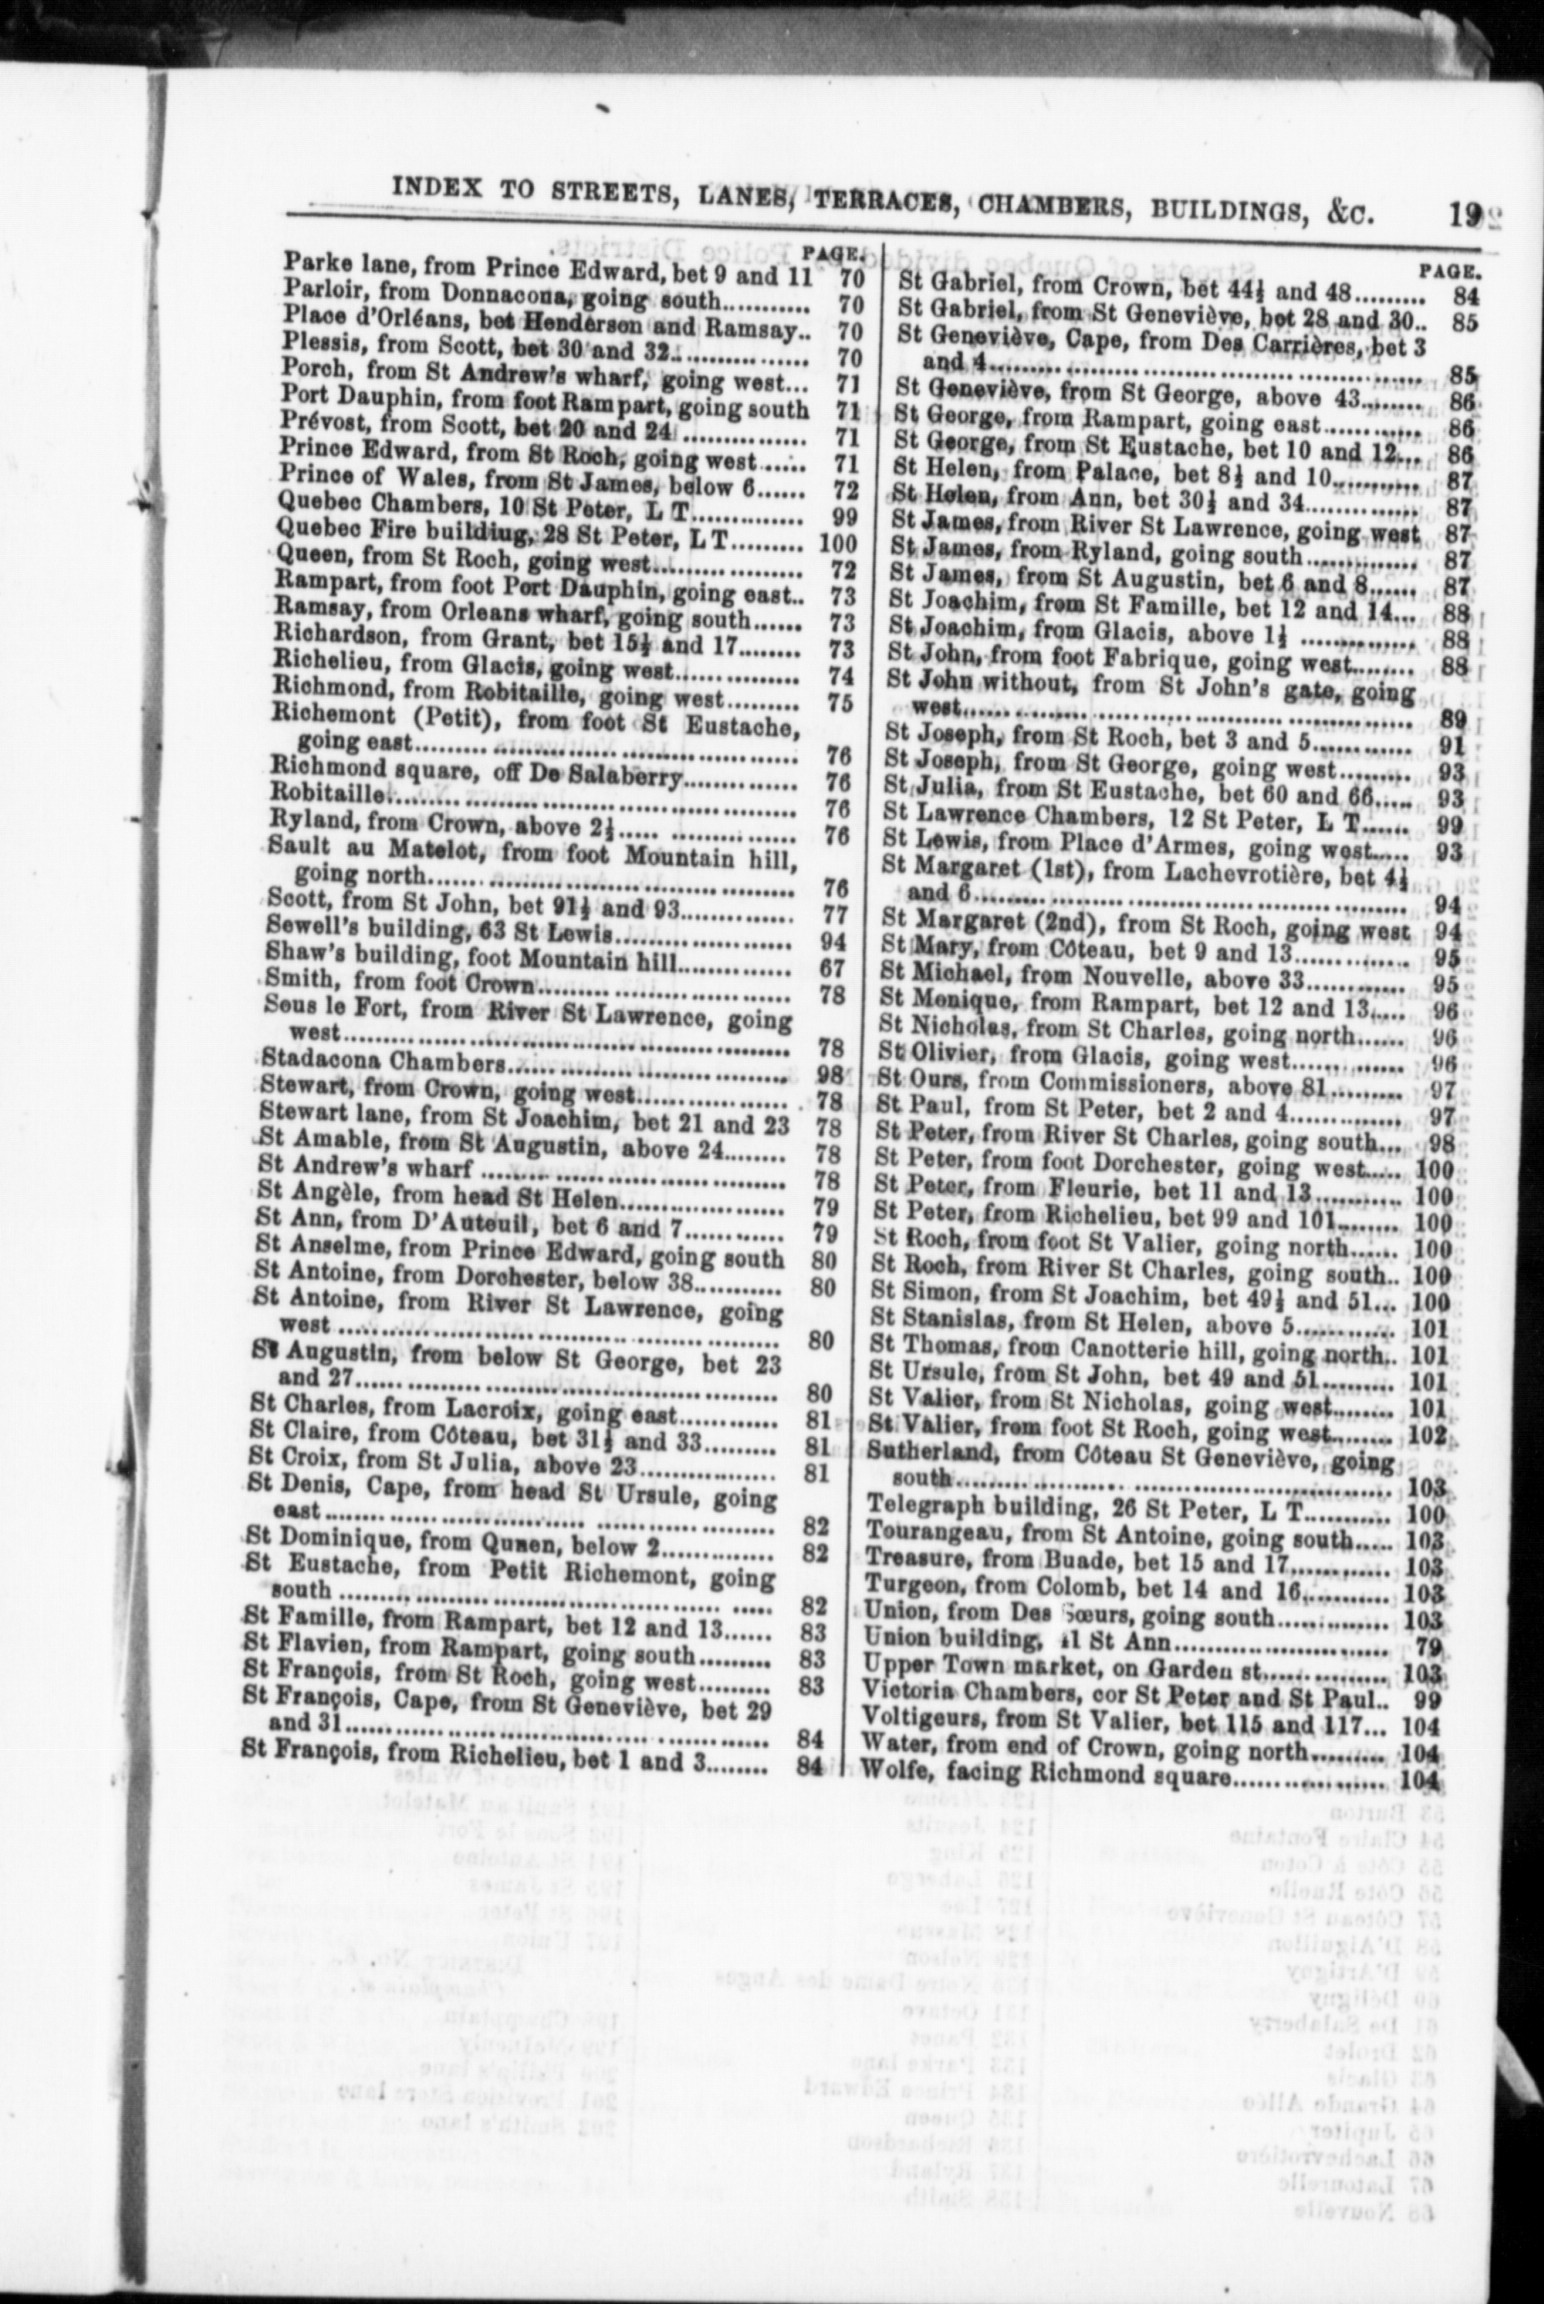 INDEX TO STREETS, LANES, TERRACES, CHAMBERS, BUILDINGS, &C. 19
PAGE.
Parke lane, from Prince Edward, bet 9 and 11 70
Parloir, from Donnacona, going south........... 70
Place d'Orléans, bet Henderson and Ramsay.. 70
Plessis, from Scott, bet 30 and 32................. 70
Porch, from St Andrew's wharf, going west... 71
Port Dauphin, from foot Rampart, going south 71
Prévost, from Scott, bet 20 and 24 ............... 71
Prince Edward, from St Roch, going west...... 71
Prince of Wales, from St James, below 6...... 72
Quebec Chambers, 10 St Peter, L T.............. 99
Quebec Fire building, 28 St Peter, L T......... 100
Queen, from St Roch, going west................... 72
Rampart, from foot Port Dauphin, going east.. 73
Ramsay, from Orleans wharf, going south...... 73
Richardson, from Grant, bet 15½ and 17........ 73
Richelieu, from Glacis, going west............... 74
Richmond, from Robitaille, going west......... 75
Richemont (Petit), from foot St Eustache,
going east................................................ 76
Richmond square, off De Salaberry.............. 76
Robitaille................................................... 76
Ryland, from Crown, above 2½..................... 76
Sault au Matelot, from foot Mountain hill,
going north.............................................. 76
Scott, from St John, bet 91½ and 93.............. 77
Sewell's building, 63 St Lewis...................... 94
Shaw's building, foot Mountain hill.............. 67
Smith, from foot Crown............................... 78
Sous le Fort, from River St Lawrence, going
west....................................................... 78
Stadacona Chambers.................................... 98
Stewart, from Crown, going west.................. 78
Stewart lane, from St Joachim, bet 21 and 23 78
St Amable, from St Augustin, above 24........ 78
St Andrew's wharf ...................................... 78
St Angèle, from head St Helen..................... 79
St Ann, from D'Auteuil, bet 6 and 7............ 79
St Anselme, from Prince Edward, going south 80
St Antoine, from Dorchester, below 38........... 80
St Antoine, from River St Lawrence, going
west ...................................................... 80
St Augustin, from below St George, bet 23
and 27.................................................... 80
St Charles, from Lacroix, going east............ 81
St Claire, from Côteau, bet 31½ and 33......... 81
St Croix, from St Julia, above 23................. 81
St Denis, Cape, from head St Ursule, going
east........................................................ 82
St Dominique, from Queen, below 2.............. 82
St Eustache, from Petit Richemont, going
south ..................................................... 82
St Famille, from Rampart, bet 12 and 13...... 83
St Flavien, from Rampart, going south......... 83
St François, from St Roch, going west......... 83
St François, Cape, from St Geneviève, bet 29
and 31.................................................... 84
St François, from Richelieu, bet 1 and 3........ 84
PAGE.
St Gabriel, from Crown, bet 44½ and 48......... 84
St Gabriel, from St Geneviève, bet 28 and 30.. 85
St Geneviève, Cape, from Des Carrières, bet 3
and 4...................................................... 85
St Geneviève, from St George, above 43........ 86
St George, from Rampart, going east............ 86
St George, from St Eustache, bet 10 and 12... 86
St Helen, from Palace, bet 8½ and 10........... 87
St Helen, from Ann, bet 30½ and 34.............. 87
St James, from River St Lawrence, going west 87
St James, from Ryland, going south.............. 87
St James, from St Augustin, bet 6 and 8....... 87
St Joachim, from St Famille, bet 12 and 14... 88
St Joachim, from Glacis, above 1½ ............... 88
St John, from foot Fabrique, going west........ 88
St John without, from St John's gate, going
west....................................................... 89
St Joseph, from St Roch, bet 3 and 5............ 91
St Joseph, from St George, going west......... 93
St Julia, from St Eustache, bet 60 and 66..... 93
St Lawrence Chambers, 12 St Peter, L T...... 99
St Lewis, from Place d'Armes, going west..... 93
St Margaret (1st), from Lachevrotière, bet 4½
and 6...................................................... 94
St Margaret (2nd), from St Roch, going west 94
St Mary, from Côteau, bet 9 and 13.............. 95
St Michael, from Nouvelle, above 33............ 95
St Monique, from Rampart, bet 12 and 13..... 96
St Nicholas, from St Charles, going north...... 96
St Olivier, from Glacis, going west.............. 96
St Ours, from Commissioners, above 81......... 97
St Paul, from St Peter, bet 2 and 4.............. 97
St Peter, from River St Charles, going south... 98
St Peter, from foot Dorchester, going west..... 100
St Peter, from Fleurie, bet 11 and 13........... 100
St Peter, from Richelieu, bet 99 and 101........ 100
St Roch, from foot St Valier, going north...... 100
St Roch, from River St Charles, going south.. 100
St Simon, from St Joachim, bet 49½ and 51... 100
St Stanislas, from St Helen, above 5............ 101
St Thomas, from Canotterie hill, going north.. 101
St Ursule, from St John, bet 49 and 51......... 101
St Valier, from St Nicholas, going west........ 101
St Valier, from foot St Roch, going west........ 102
Sutherland, from Côteau St Geneviève, going
south...................................................... 103
Telegraph building, 26 St Peter, L T........... 100
Tourangeau, from St Antoine, going south..... 103
Treasure, from Buade, bet 15 and 17............ 103
Turgeon, from Colomb, bet 14 and 16........... 103
Union, from Des Sœurs, going south.............. 103
Union building, 11 St Ann........................... 79
Upper Town market, on Garden st............... 103
Victoria Chambers, cor St Peter and St Paul.. 99
Voltigeurs, from St Valier, bet 115 and 117... 104
Water, from end of Crown, going north......... 104
Wolfe, facing Richmond square................... 104